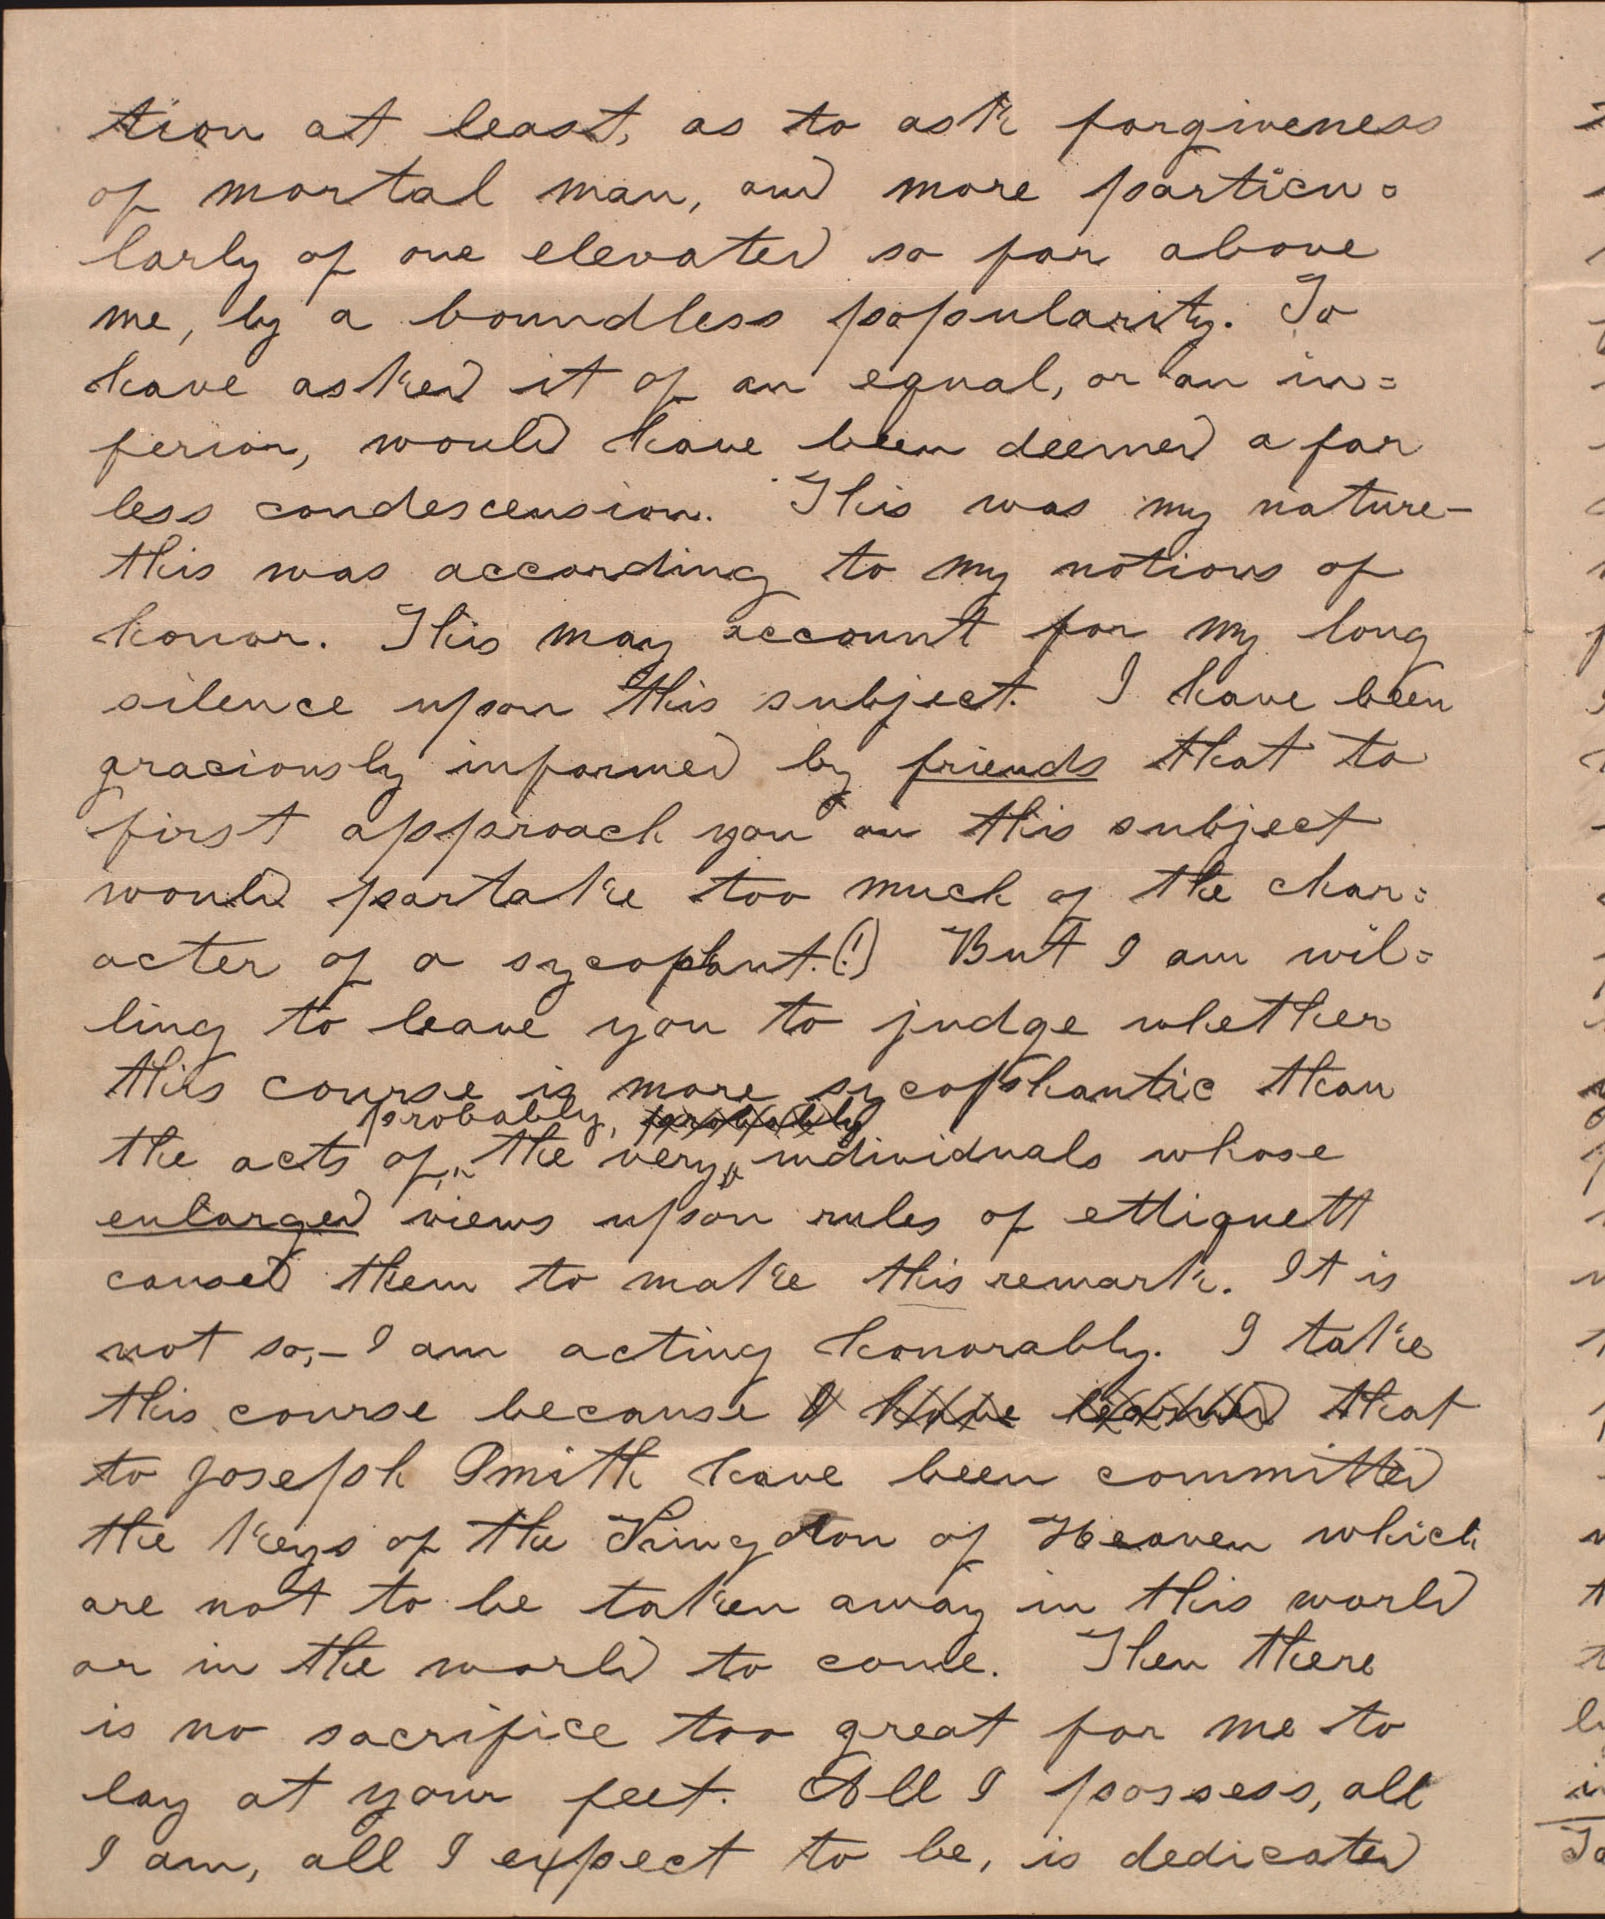 tion at least, as to ask forgiveness
of mortal man, and more particu=
larly of one elevated so far above
me, by a boundless popularity. To
have asked it of an equal, or an in=
ferior, would have been deemed a far
less condescension. This was my nature—
this was according to my notions of
honor. This may account for my long
silence upon this subject. I have been
graciously informed by friends that to
first approach you on this subject
would partake too much of the char=
acter of a sycophant.(!) But I am wil=
ling to leave you to judge whether
this course is more sycophantic than
probably, probably
the acts of, the very individuals whose
enlarged views upon rules of ettiquett
caused them to make this remark. It is
not so,— I am acting honorably. I take
this course because I have learned that
to Joseph Smith have been committed
the keys of the Kingdom of Heaven which
are not to be taken away in this world
or in the world to come. Then there
is no sacrifice too great for me to
lay at your feet. All I possess, all
I am, all I expect to be, is dedicated